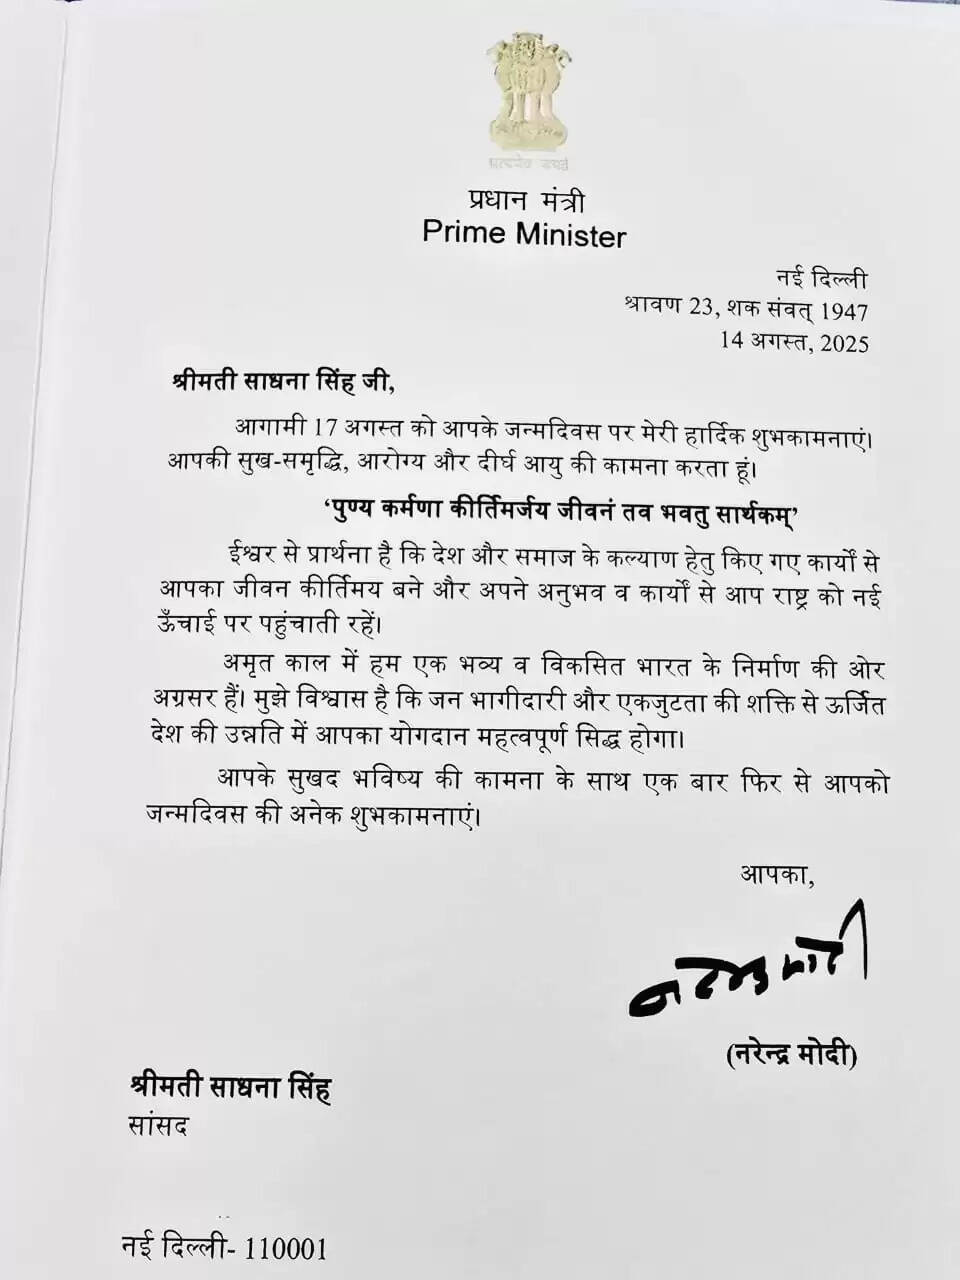 सत्यमेव जयते
प्रधान मंत्री
Prime Minister
नई दिल्ली
श्रावण 23, शक संवत् 1947
14 अगस्त, 2025
श्रीमती साधना सिंह जी,
आगामी 17 अगस्त को आपके जन्मदिवस पर मेरी हार्दिक शुभकामनाएं।
आपकी सुख-समृद्धि, आरोग्य और दीर्घ आयु की कामना करता हूं।
‘पुण्य कर्मणा कीर्तिमर्जय जीवनं तव भवतु सार्थकम्’
ईश्वर से प्रार्थना है कि देश और समाज के कल्याण हेतु किए गए कार्यों से
आपका जीवन कीर्तिमय बने और अपने अनुभव व कार्यों से आप राष्ट्र को नई
ऊँचाई पर पहुंचाती रहें।
अमृत काल में हम एक भव्य व विकसित भारत के निर्माण की ओर
अग्रसर हैं। मुझे विश्वास है कि जन भागीदारी और एकजुटता की शक्ति से ऊर्जित
देश की उन्नति में आपका योगदान महत्वपूर्ण सिद्ध होगा।
आपके सुखद भविष्य की कामना के साथ एक बार फिर से आपको
जन्मदिवस की अनेक शुभकामनाएं।
आपका,
नरेन्द्र मोदी
(नरेन्द्र मोदी)
श्रीमती साधना सिंह
सांसद
नई दिल्ली- 110001